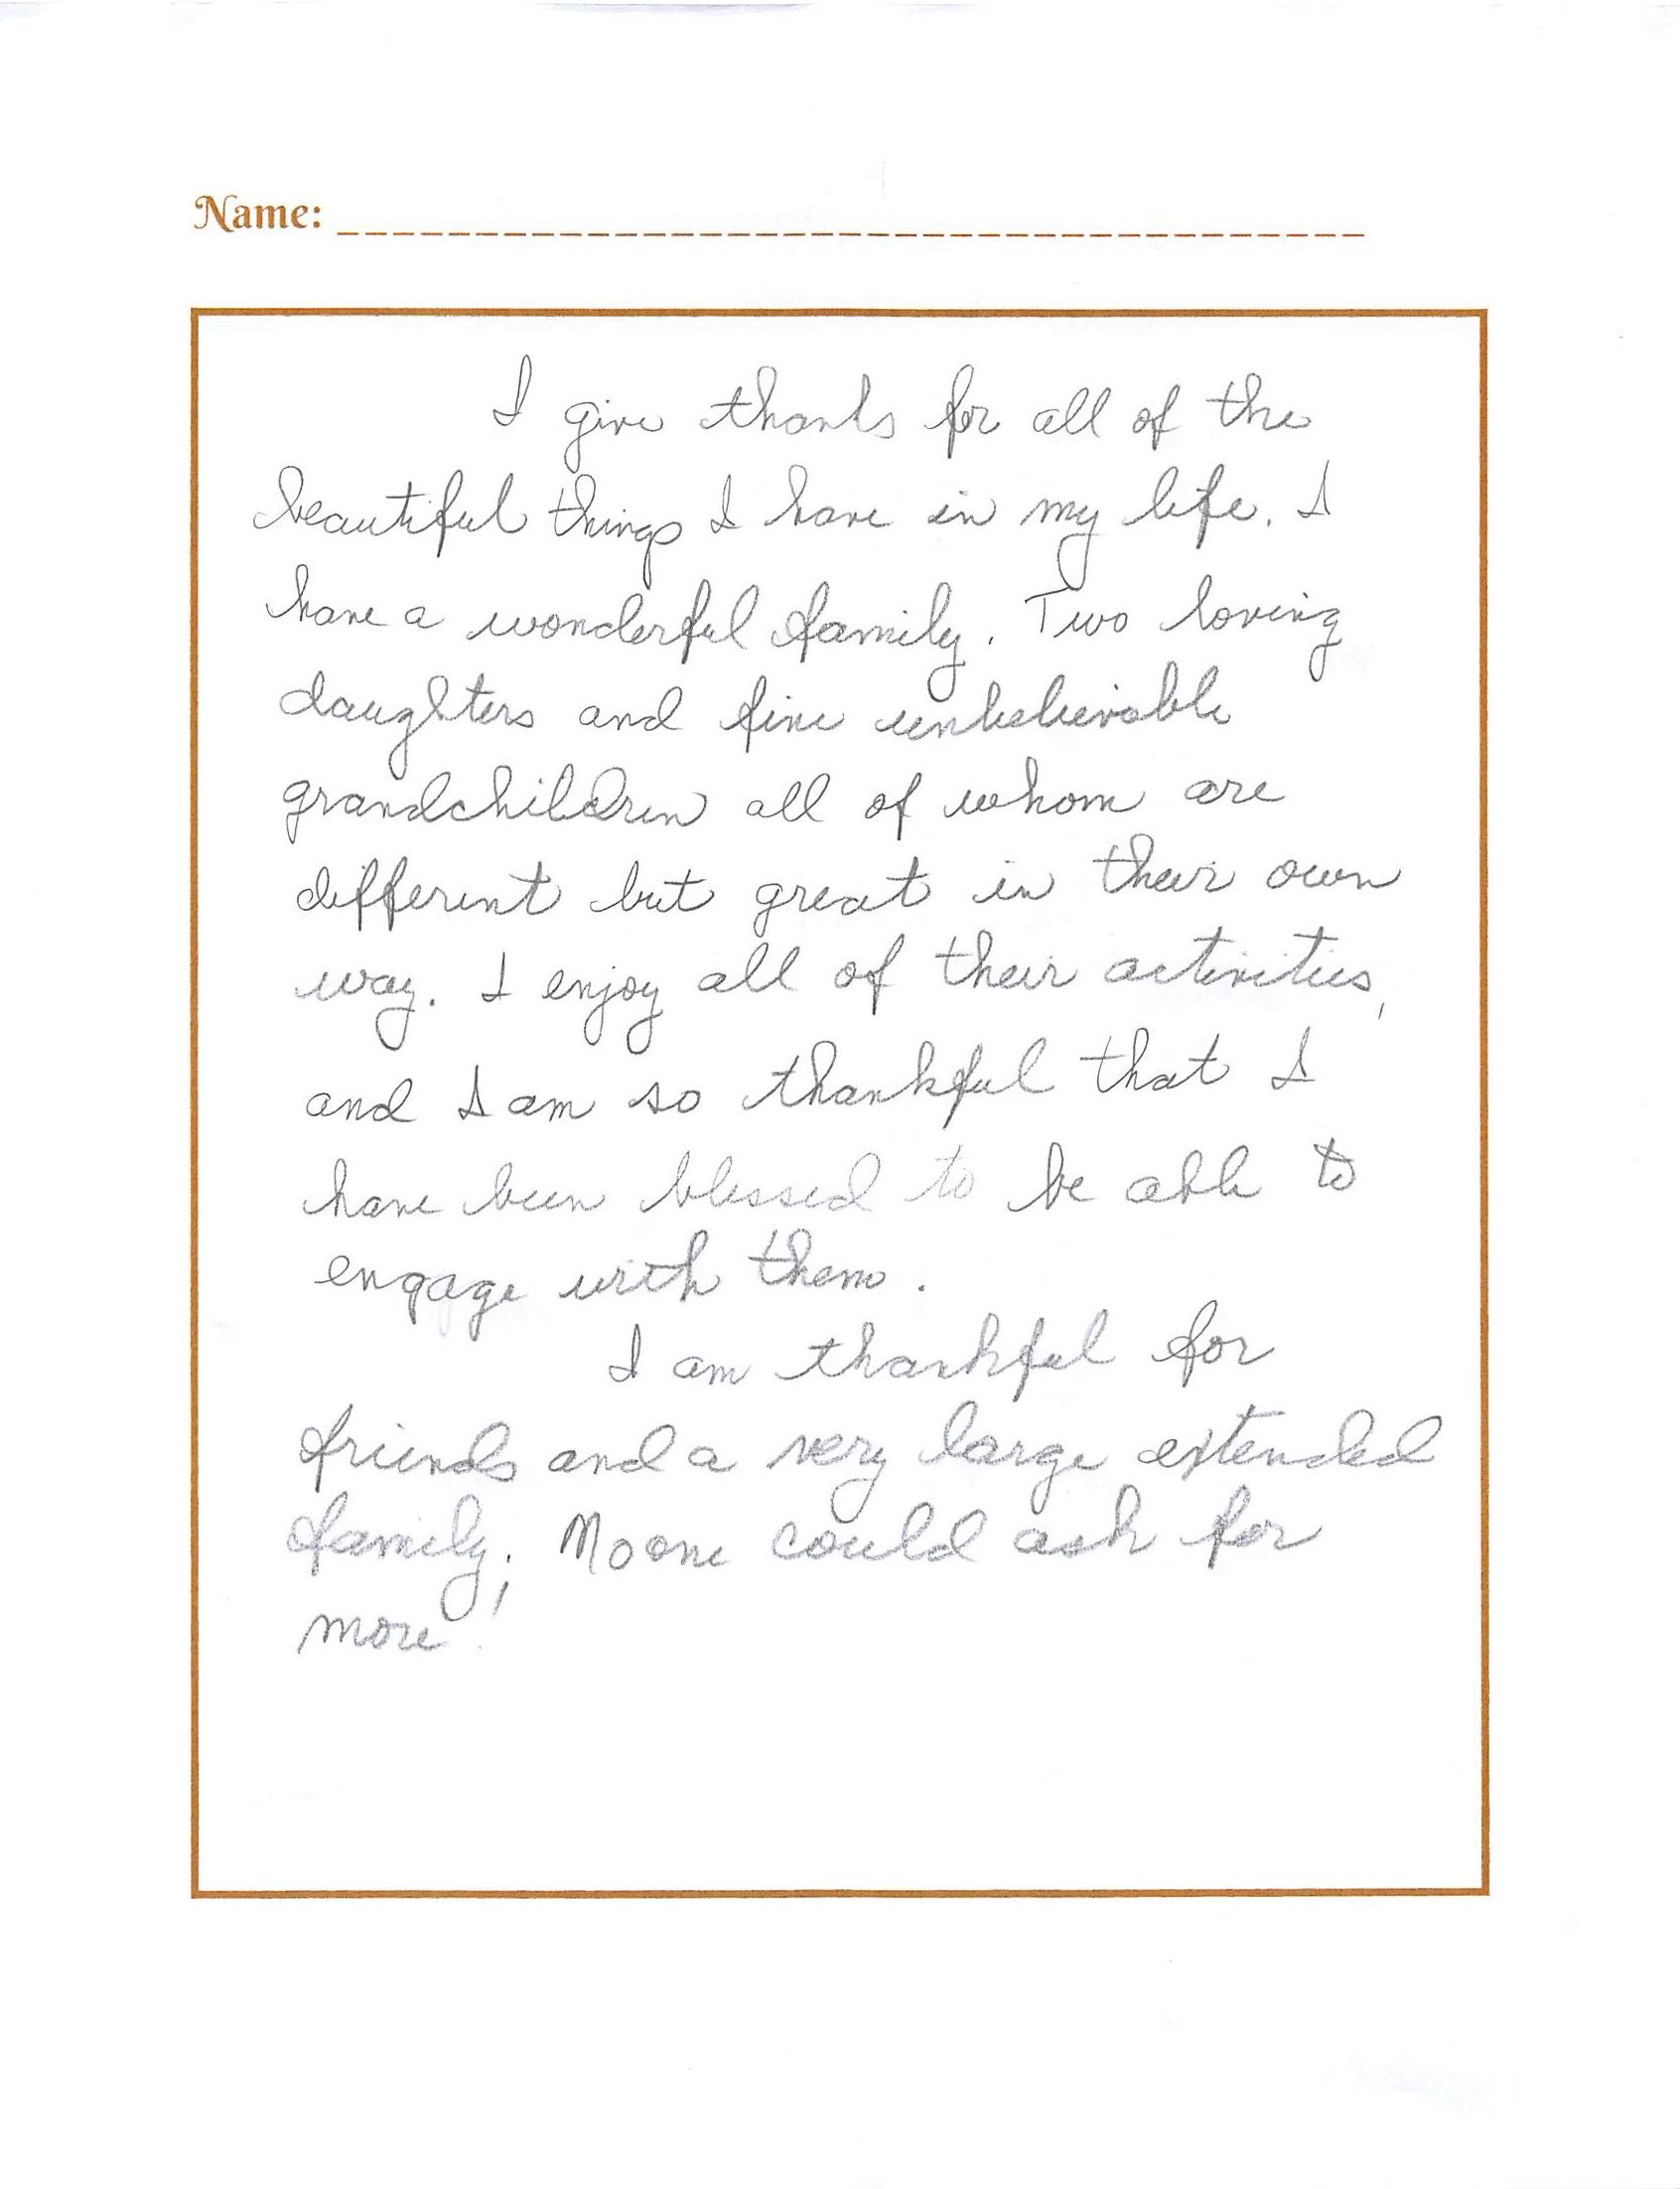 Name:
I give thanks for all of the
beautiful things I have in my life. I
have a wonderful family. Two loving
daughters and five unbelievable
grandchildren all of whom are
different but great in their own
way. I enjoy all of their activities,
and I am so thankful that I
have been blessed to be able to
engage with them.
I am thankful for
friends and a very large extended
family; No one could ask for
more!